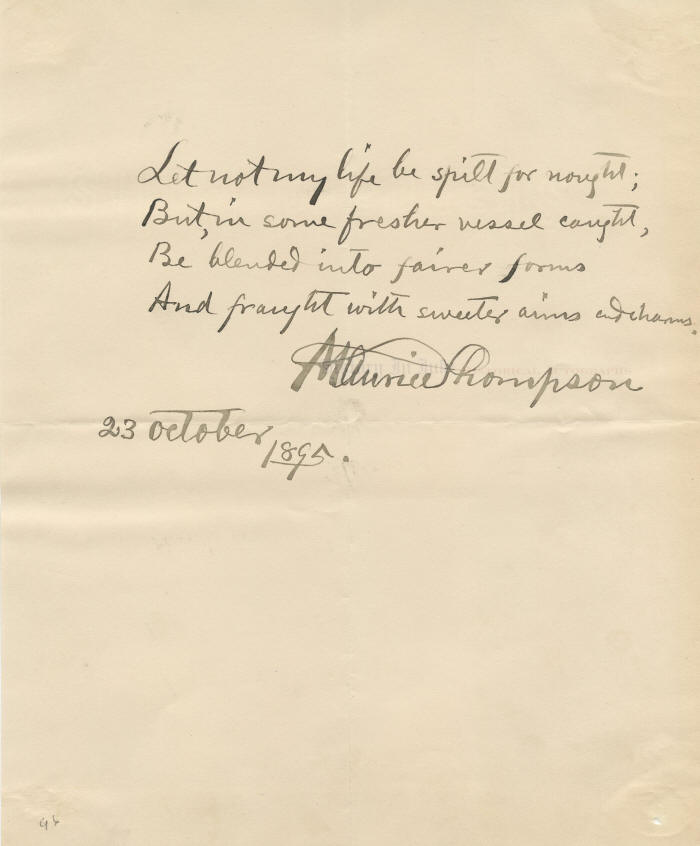 Let not my life be spilt for nought;
But, in some fresher vessel caught,
Be blended into fairer forms
And fraught with sweeter aims and charms.
Maurice Thompson
23 October
1895.